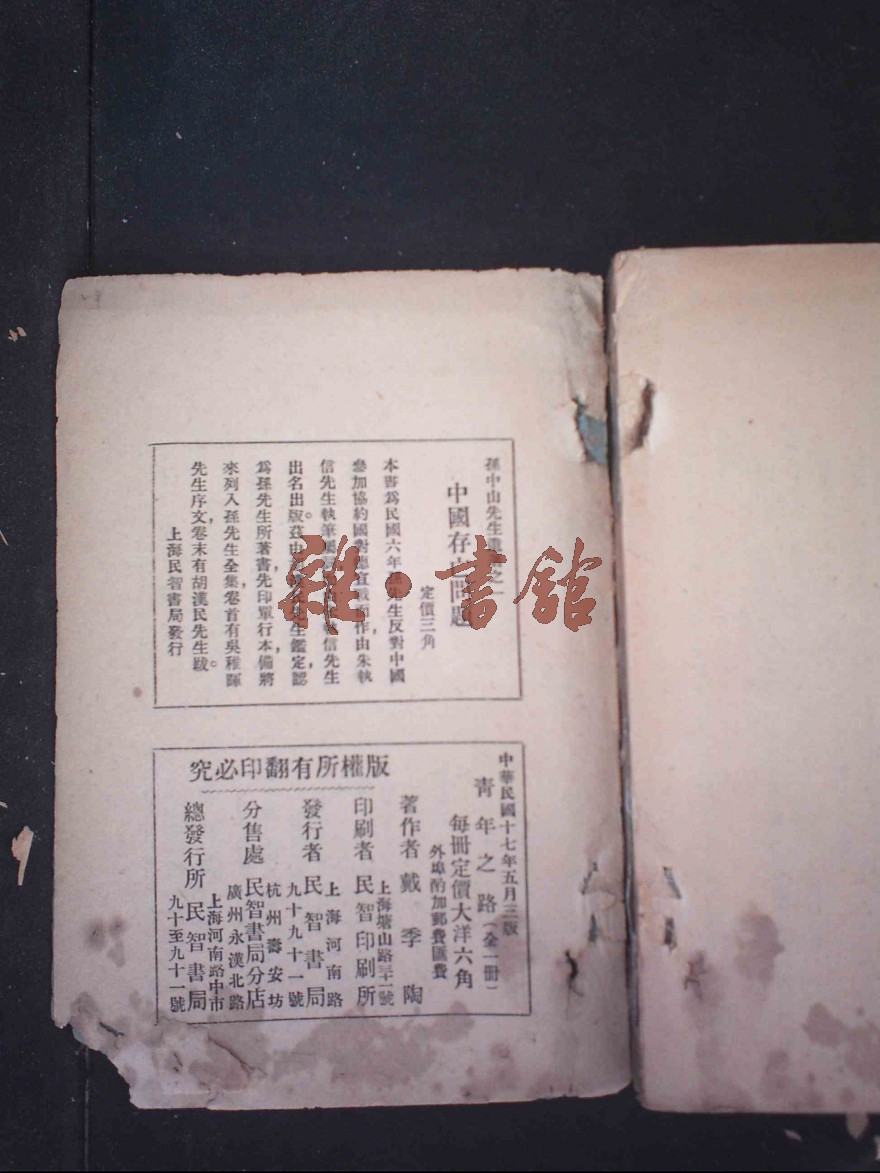 孫中山先生遺著之一
中國存亡問題
定價三角
本書爲民國六年孫先生反對中國
參加協約國對德宣戰而作由朱執
信先生執筆 執信先生
出名出版。茲由 先生鑑定,認
爲孫先生所著書,先印單行本,備將
來列入孫先生全集,卷首有吳稚暉
先生序文,卷末有胡漢民先生跋。
上海民智書局發行
雜·書館
版權所有翻印必究
中華民國十七年五月三版
靑年之路(全一册)
每冊定價大洋六角
外埠酌加郵費匯費
著作者 戴季陶
上海塘山路三十一號
印刷者 民智印刷所
上海河南路
發行者 民智書局
九十九十一號
杭州壽安坊
分售處 民智書局分店
廣州永漢北路
上海河南路中市
總發行所 民智書局
九十至九十一號